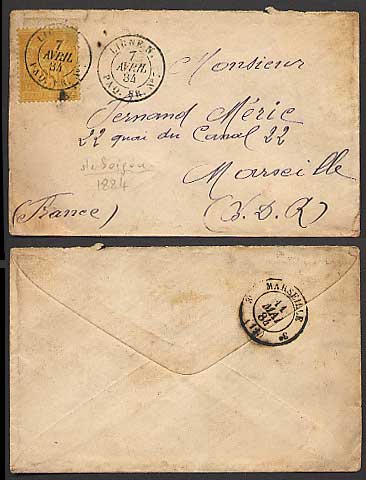 LIGNE N.
7
AVRIL
84
PAQ. FR. Nº 7
LIGNE N.
7
AVRIL
84
PAQ. FR. Nº 7
Monsieur
Fernand Méric
22 quai du Canal 22
Marseille
(France)
(B.D.R)
de Saigon
1884
MARSEILLE
11
MAI
84
3e